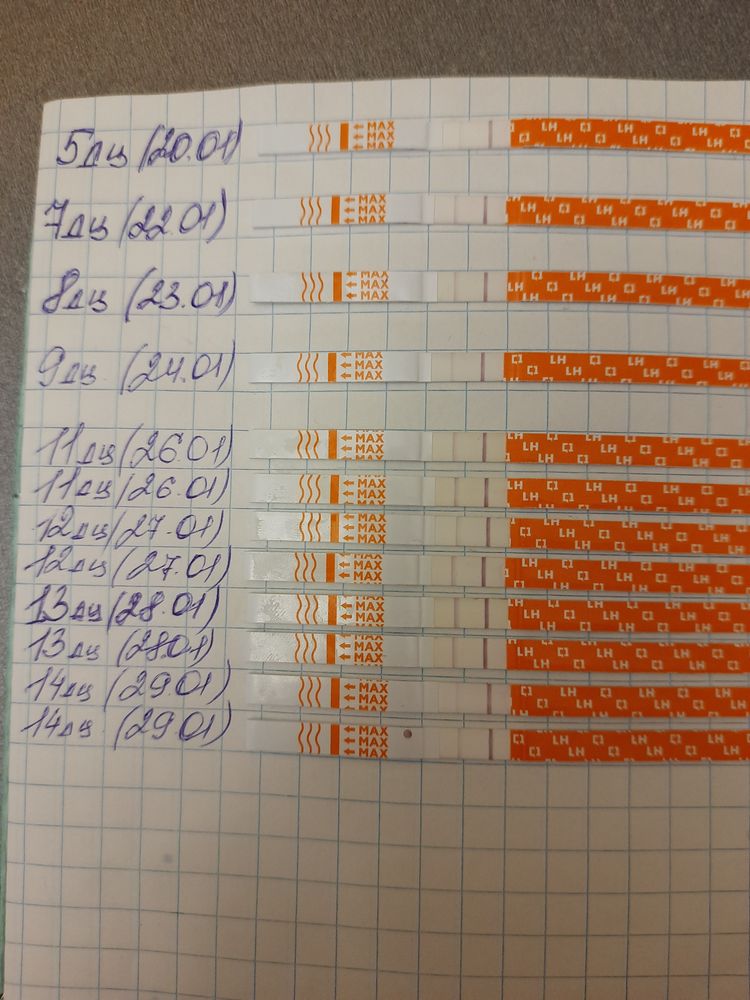 5дц (20.01) MAX MAX MAX LH
7дц (22.01) MAX MAX MAX LH
8дц (23.01) MAX MAX MAX LH
9дц (24.01) MAX MAX MAX LH
11дц (26.01) MAX MAX MAX LH
11дц (26.01) MAX MAX MAX LH
12дц (27.01) MAX MAX MAX LH
12дц (27.01) MAX MAX MAX LH
13дц (28.01) MAX MAX MAX LH
13дц (28.01) MAX MAX MAX LH
14дц (29.01) MAX MAX MAX LH
14дц (29.01) MAX MAX MAX LH